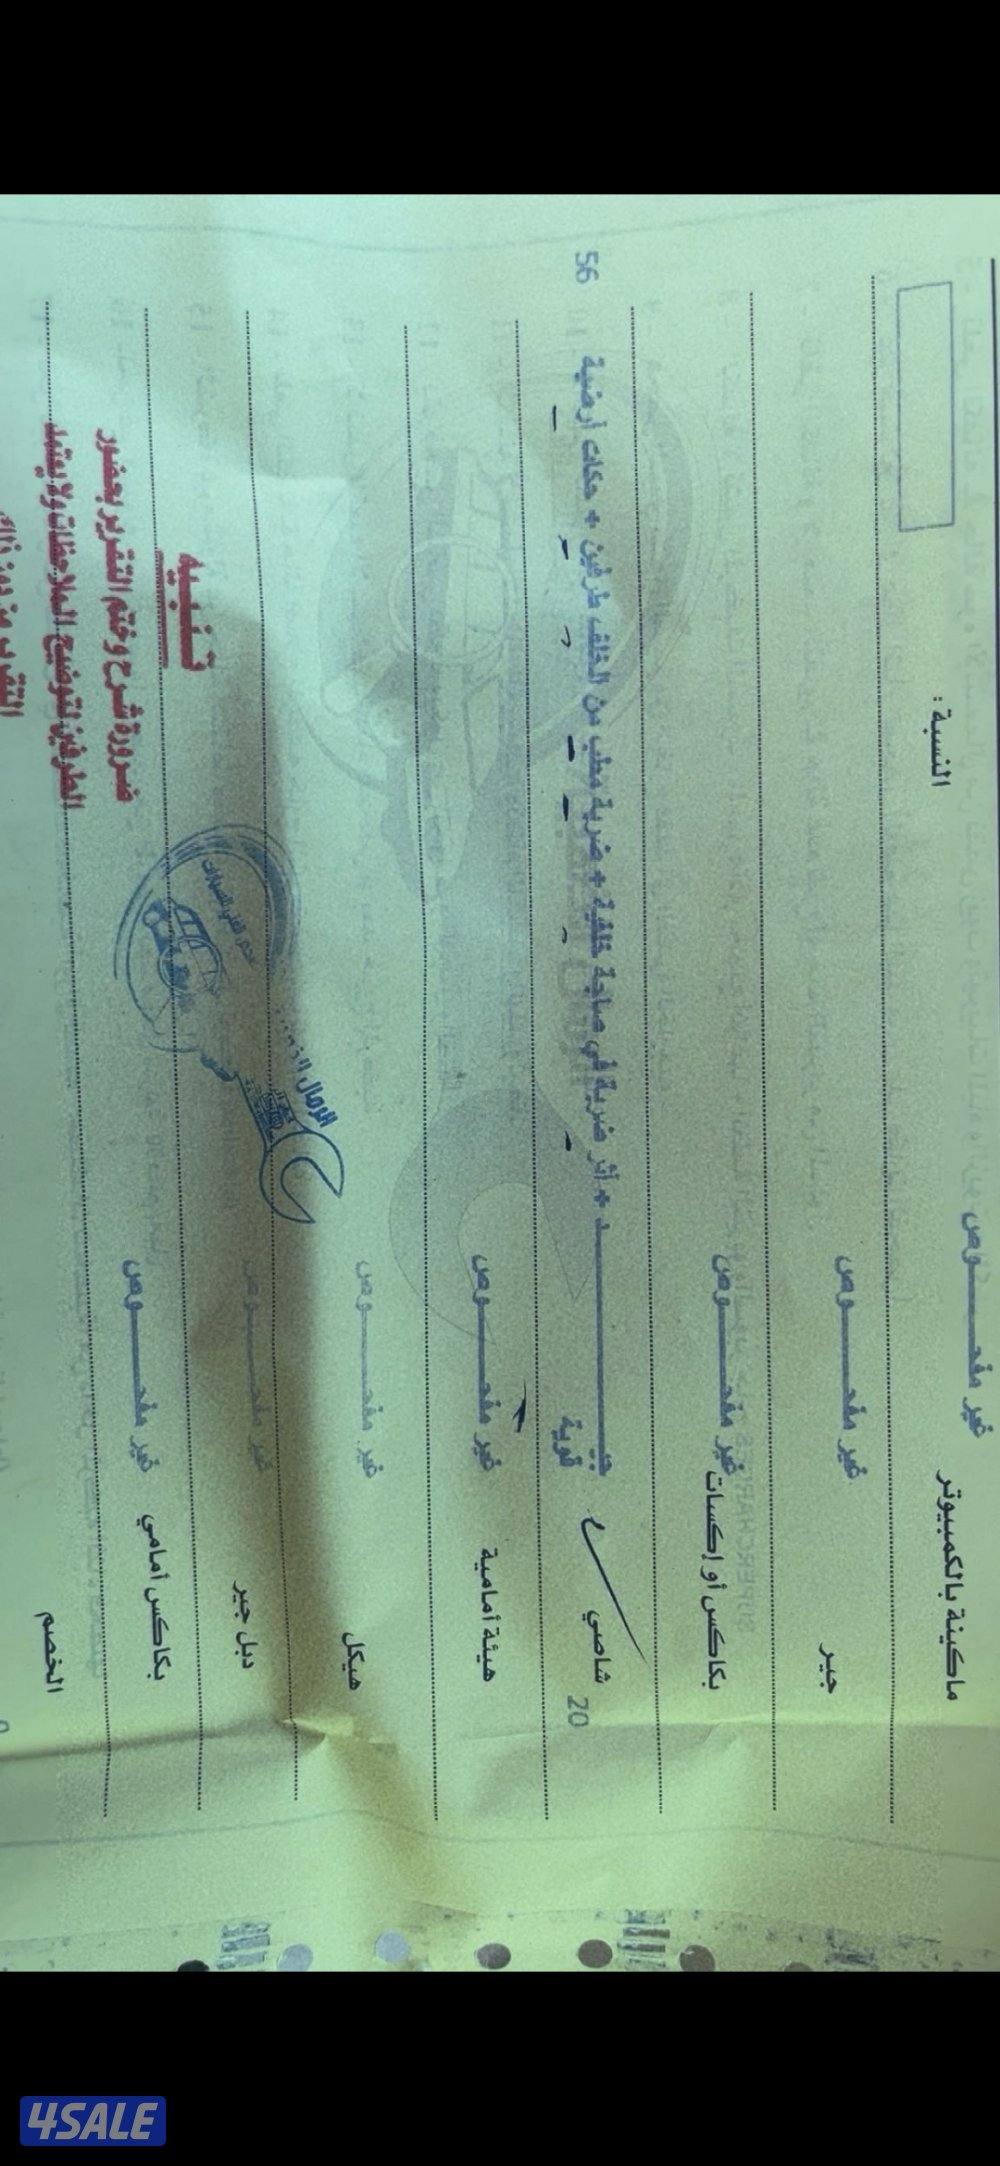 ماكينة بالكمبيوتر غير مفحـــوص
النسبة :
جير غير مفحـــوص
بكاكس أو إكسات غير مفحـــوص
20 شاصي جيـــــد + أثر ضربة في صاجة خلفية + ضربة مطب من الخلف طرفين + حكات أرضية 56
قوية
هيئة أمامية غير مفحـــوص
هيكل غير مفحـــوص
دبل جير غير مفحـــوص
بكاكس أمامي غير مفحـــوص
الخصم
تنبيه
ضرورة شرح وختم التقرير بحضور
الطرفين لتوضيح الملاحظات ولا يعتمد
4SALE